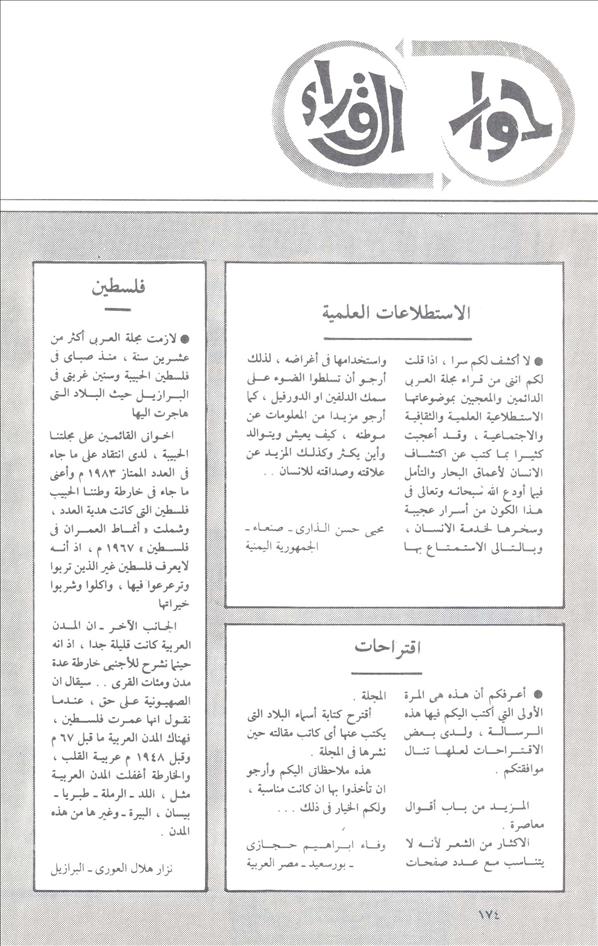 حوار القراء
الاستطلاعات العلمية
● لا أكشف لكم سرا ، اذا قلت
لكم انني من قراء مجلة العربي
الدائمين والمعجبين بموضوعاتها
الاستطلاعية العلمية والثقافية
والاجتماعية ، وقد أعجبت
كثيرا بما كتب عن اكتشاف
الانسان لأعماق البحار والتأمل
فيما أودع الله سبحانه وتعالى في
هذا الكون من أسرار عجيبة
وسخرها لخدمة الانسان ،
وبالتالى الاستمتاع بها
واستخدامها في أغراضه ، لذلك
أرجو أن تسلطوا الضوء على
سمك الدلفين او الدورفيل ، كما
أرجو مزيدا من المعلومات عن
موطنه ، كيف يعيش ويتوالد
وأين يكثر وكذلك المزيد عن
علاقته وصداقته للانسان ..
محيى حسن الذارى ـ صنعاء ـ
الجمهورية اليمنية
فلسطين
● لازمت مجلة العربى أكثر من
عشرين سنة ، منذ صباى فى
فلسطين الحبيبة وسنين غربتى فى
البرازيل حيث البلاد التى
هاجرت اليها
اخوانى القائمين على مجلتنا
الحبيبة ، لدى انتقاد على ما جاء
فى العدد الممتاز ١٩٨٣ م وأعنى
ما جاء فى خارطة وطننا الحبيب
فلسطين التى كانت هدية العدد ،
وشملت « أنماط العمران فى
فلسطين » ١٩٦٧ م ، اذ أنه
لايعرف فلسطين غير الذين تربوا
وترعرعوا فيها ، واكلوا وشربوا
خيراتها
الجانب الآخر ـ ان المدن
العربية كانت قليلة جدا ، اذ انه
حينما نشرح للأجنبى خارطة عدة
مدن ومئات القرى .. سيقال ان
الصهيونية على حق ، عندما
نقول انها عمرت فلسطين ،
فهناك المدن العربية ما قبل ٦٧ م
وقبل ١٩٤٨ م عربية القلب ،
والخارطة أغفلت المدن العربية
مثل ، اللد ـ الرملة ـ طبريا ـ
بيسان ، البيرة ـ وغيرها من هذه
المدن .
نزار هلال العورى ـ البرازيل
اقتراحات
● أعرفكم أن هذه هى المرة
الأولى التي أكتب اليكم فيها هذه
الرسالة ، ولدى بعض
الاقتراحات لعلها تنال
موافقتكم .
المزيد من باب أقوال
معاصرة .
الاكثار من الشعر لأنه لا
يتناسب مع عدد صفحات
المجلة .
أقترح كتابة أسماء البلاد التى
يكتب عنها أى كاتب مقالته حين
نشرها فى المجلة .
هذه ملاحظاتى اليكم وأرجو
ان تأخذوا بها ان كانت مناسبة ،
ولكم الخيار فى ذلك ...
وفاء ابراهيم حجازى
ـ بورسعيد ـ مصر العربية
١٧٤